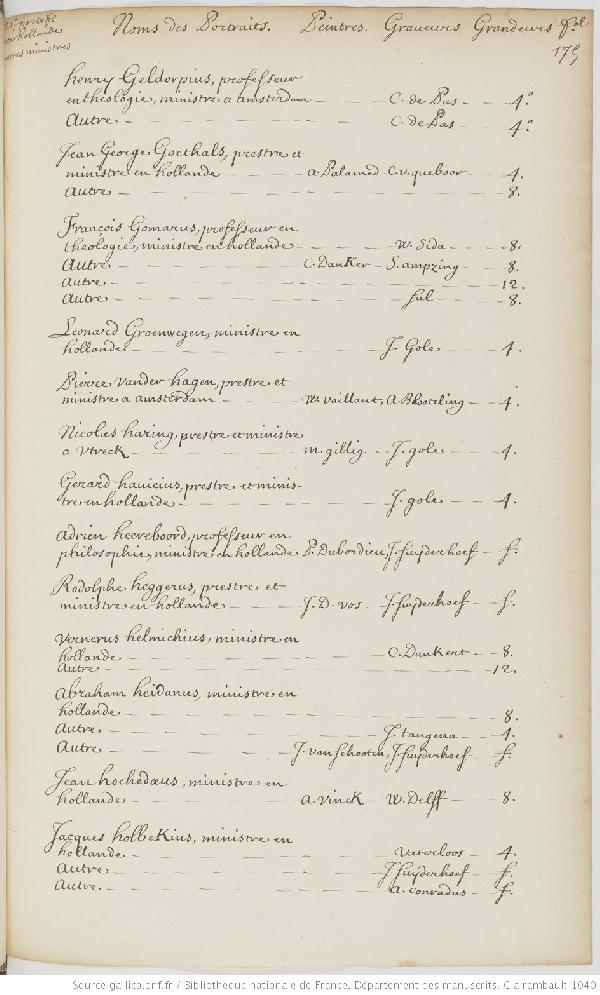 Noms des Portraits. Peintres. Graveurs Grandeurs fol
175
henry Geldorpius, professeur
en theologie, ministre a amsterdam — C. de Pas — 4.°
Autre — C. de Pas — 4.°
Jean George Goethals, prestre et
ministre en hollande — a Palamed C. v. queboor — 4.
autre — 8.
François Gomarus, professeur en
theologie, ministre en hollande — W. Sida — 8.
Autre — C. DanKer — S. ampzing — 8.
Autre — 12.
Autre — hal — 8.
Leonard Groenwegen, ministre en
hollande — J. Gole — 4.
Pierre vander hagen, prestre et
ministre a amsterdam — W. vaillant, A Blooteling — 4.
Nicolas haring, prestre et ministre
a Vtreck — m. gillig — J. gole — 4.
Gerard havicius, prestre et minis-
tre en hollande — J. gole — 4.
adrien heereboord, professeur en
philosophie, ministre en hollande P. Dubordieu, J. suyderhoef — f.
Rodolphe heggerus, prestre et
ministre en hollande — J. D. vos — J. suyderhoef — f.
Vernerus helmichius, ministre en
hollande — C. DanKert — 8.
Autre — 12.
Abraham heidanus, ministre en
hollande — 8.
Autre — J. tangena — 4.
Autre — J. van schooten, J. suyderhoef — f.
Jean hochedæus, ministre en
hollande — a. vinck — W. Delff — 8.
Jacques holbeKius, ministre en
hollande — vaterloos — 4.
Autre — J. suyderhoef — f.
Autre — a. conradus — f.
Source gallica.bnf.fr / Bibliothèque nationale de France. Département des manuscrits. Clairambault 1040